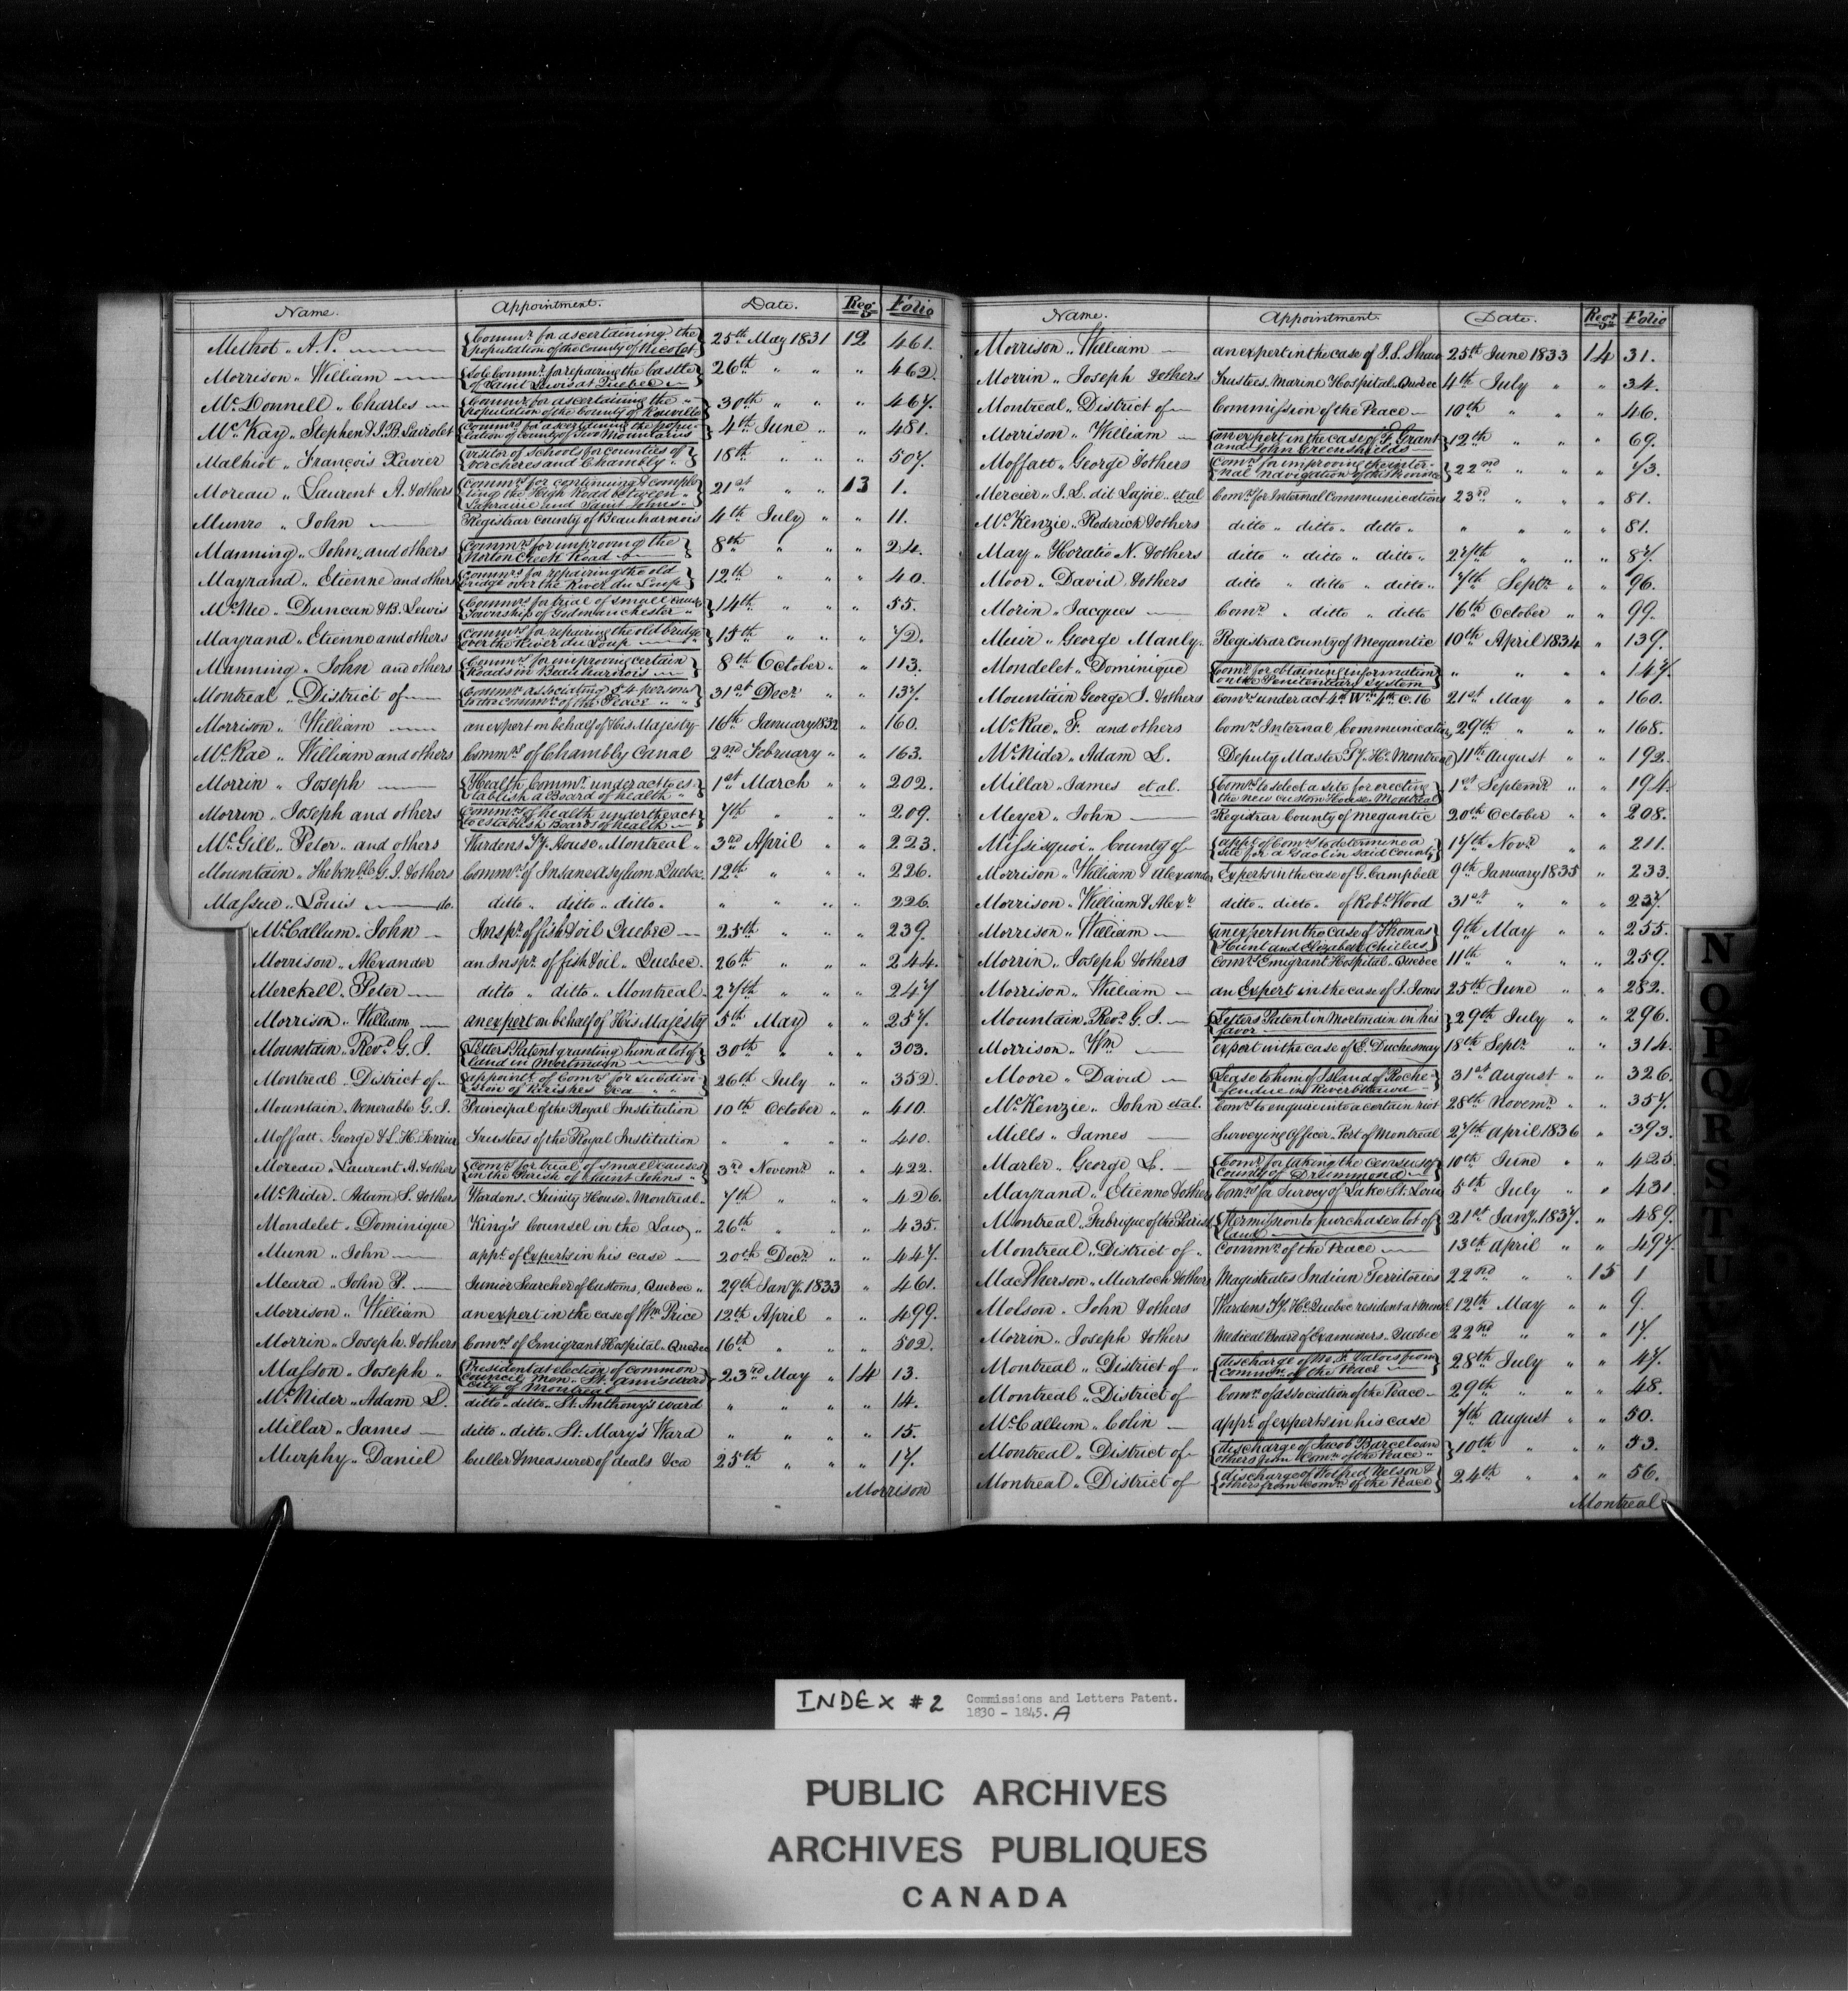 Name. Appointment. Date. Reg. Folio
Methot „ A. P. {Commr. for ascertaining the
population of the County of Nicolet} 25th May 1831 12 461.
Morrison „ William {Sole Commr. for repairing the Castle
of Saint Lewis at Quebec} 26th „ „ „ 462.
McDonnell „ Charles {Commr. for ascertaining the „
population of the County of Rouville} 30th „ „ „ 467.
McKay „ Stephen & J. B. Lairolet {Commrs. for ascertaining the popu-
lation of county of Two Mountains} 4th June „ „ 481.
Malhiot „ François Xavier {Visitor of Schools for counties of
Vercheres and Chambly} 18th „ „ „ 507.
Moreau „ Laurent A. & others {Commrs. for continuing & comple-
ting the High Road between „
Laprairie and Saint Johns} 21st „ „ 13 1.
Munro „ John Registrar County of Beauharnois 4th July „ „ 11.
Manning „ John „ and others {Commrs. for improving the
Norton Creek Road} 8th „ „ „ 24.
Mayrand „ Etienne and others {Commrs. for repairing the old
bridge over the River du Loup} 12th „ „ „ 40.
McNee „ Duncan & B. Lewis {Commrs. for trial of small causes
Township of Godmanchester} 14th „ „ „ 55.
Mayrand „ Etienne and others {Commrs. for repairing the old bridge
over the River du Loup} 15th „ „ „ 72.
Manning „ John and others {Commrs. for improving certain
Roads in Beauharnois} 8th October „ „ 113.
Montreal „ District of {Commn. associating 54 persons
to the Commn. of the Peace} 31st Decr. „ „ 137.
Morrison „ William an expert on behalf of His Majesty 16th January 1832 „ 160.
McRae „ William and others Commrs. of Chambly Canal 2nd February „ „ 163.
Morrin „ Joseph {Health Commr. under act to es-
tablish a Board of health} 1st March „ „ 202.
Morrin „ Joseph and others {Commrs. of health under the act
to establish Boards of health} 7th „ „ „ 209.
McGill „ Peter „ and others Wardens Ty. House „ Montreal „ 3rd April „ „ 223.
Mountain „ The Venble. G. J. & others Commrs. of Insane Asylum Quebec 12th „ „ „ 226.
Massue „ Louis do. ditto „ ditto „ ditto „ „ „ „ „ 226.
McCallum „ John Inspr. of fish & oil Quebec 25th „ „ „ 239.
Morrison „ Alexander an Inspr. of fish & oil „ Quebec. 26th „ „ „ 244.
Merckell „ Peter ditto „ ditto „ Montreal 27th „ „ „ 247
Morrison „ William an expert on behalf of His Majesty 5th May „ „ 257.
Mountain „ Revd. G. J. {Letters Patent granting him a lot of
land in Mortmain} 30th „ „ „ 303.
Montreal „ District of {appointt. of Comrs. for subdivi-
sion of Parishes &ca} 26th July „ „ 352.
Mountain „ Venerable G. J. Principal of the Royal Institution 10th October „ „ 410.
Moffatt „ George & L. H. Ferrier Trustees of the Royal Institution „ „ „ „ 410.
Moreau „ Laurent A. & others {Comrs. for trial of small causes
in the Parish of Saint Johns} 3rd Novemr. „ „ 422.
McNider „ Adam L. & others Wardens Trinity House „ Montreal „ 7th „ „ „ 426.
Mondelet „ Dominique King's Counsel in the Law „ 26th „ „ „ 435.
Munn „ John appt. of Experts in his case 20th Decr. „ „ 447.
Meara „ John P. Junior Searcher of Customs, Quebec „ 29th Jany. 1833 „ 461.
Morrison „ William an expert in the case of Wm. Price 12th April „ „ 499.
Morrin „ Joseph & others Comrs. of Emigrant Hospital „ Quebec 16th „ „ „ 502.
Masson „ Joseph „ {President at election of common
council men „ St. Ann's ward
city of Montreal 23rd May „ 14 13.
McNider „ Adam L. ditto „ ditto „ St. Anthony's ward „ „ „ „ 14.
Millar „ James ditto „ ditto „ St. Mary's Ward „ „ „ „ 15.
Murphy „ Daniel Culler & measurer of deals &ca 25th „ „ „ 17.
Morrison
Name. Appointment. Date. Regr. Folio
Morrison „ William an expert in the case of J. S. Shaw 25th June 1833 14 31.
Morrin „ Joseph & others Trustees Marine Hospital „ Quebec 4th July „ „ 34.
Montreal „ District of Commission of the Peace 10th „ „ „ 46.
Morrison „ William {an expert in the case of F. Grant
and John Greenshields} 12th „ „ „ 69.
Moffatt „ George & others {Comrs. for improving the inter-
nal navigation of the Province} 22nd „ „ „ 73.
Mercier „ J. L. dit Lajoie „ et al Comrs. for Internal Communications 23rd „ „ „ 81.
McKenzie „ Roderick & others ditto „ ditto „ ditto „ „ „ „ „ 81.
May „ Horatio N. & others ditto „ ditto „ ditto „ 27th „ „ „ 87.
Moor „ David & others ditto „ ditto „ ditto „ 7th Septr. „ „ 96.
Morin „ Jacques Comr. „ ditto „ ditto 16th October „ „ 99.
Meir „ George Manly „ Registrar County of Megantic 10th April 1834 „ 139.
Mondelet „ Dominique {Comr. for obtaining information
on the Penitentiary System „ „ „ „ 147.
Mountain George J. & others Comrs. under act 4th Wm. 4th C. 16 21st May „ „ 160.
McRae „ F. and others Comrs. Internal Communication 29th „ „ „ 168.
McNider „ Adam L. Deputy Master Ty. He. Montreal 11th August „ „ 192.
Millar „ James et al. {Comrs. to select a site for erecting
the new custom House „ Montreal 1st Septemr. „ „ 194.
Meyer „ John Registrar County of Megantic 20th October „ „ 208.
Missisquoi „ County of {appt. of Comrs. to determine a
site for a Gaol in said County} 17th Novr. „ „ 211.
Morrison „ William & Alexander Experts in the case of G. Campbell 9th January 1835 „ 233.
Morrison „ William & Alexr. ditto „ ditto „ of Robt. Wood 31st „ „ „ 237.
Morrison „ William {an expert in the case of Thomas
Hunt and Elizabeth Chillas} 9th May „ „ 255.
Morrin „ Joseph & others Comrs. Emigrant Hospital „ Quebec 11th „ „ „ 259.
Morrison „ William an Expert in the case of J. Jones 25th June „ „ 282.
Mountain „ Revd. G. J. {Letters Patent in Mortmain in his
favor} 29th July „ „ 296.
Morrison „ Wm. expert in the case of E. Duchesnay 18th Septr. „ „ 314.
Moore „ David {Lease to him of Island of Roche-
fendue in River Ottawa} 31st August „ „ 326.
McKenzie „ John et al. Comrs. to enquire into a certain riot 28th Novemr. „ „ 357.
Mills „ James Surveying Officer „ Port of Montreal 27th April 1836 „ 393.
Marler „ George L. {Comr. for taking the Census of
County of Drummond} 10th June „ „ 425.
Mayrand „ Etienne & others Comrs. for Survey of Lake St. Louis 5th July „ „ 431.
Montreal „ Fabrique of the Parish {Permission to purchase a lot of
land} 21st Jany. 1837. „ 489.
Montreal „ District of „ Commn. of the Peace 13th April „ „ 497.
MacPherson „ Murdoch & others Magistrates Indian Territories 22nd „ „ 15 1
Molson „ John & others Wardens Ty. He. Quebec resident at Montl. 12th May „ „ 9.
Morrin „ Joseph & others Medical Board of Examiners „ Quebec 22nd „ „ „ 17.
Montreal „ District of „ {discharge of Mr. F. Valois from
Commn. of the Peace} 28th July „ „ 47.
Montreal „ District of Comn. of association of the Peace 29th „ „ „ 48.
McCallum „ Colin appt. of experts in his case 7th August „ „ 50.
Montreal „ District of {discharge of Jacob Barcelo an
others from Comn. of the Peace} 10th „ „ „ 53.
Montreal „ District of {discharge of Wolfred Nelson &
others from Comn. of the Peace} 24th „ „ „ 56.
Montreal
N
O
P
Q
R
S
T
U
INDEX #2 Commissions and Letters Patent.
1830 - 1845. A
PUBLIC ARCHIVES
ARCHIVES PUBLIQUES
CANADA